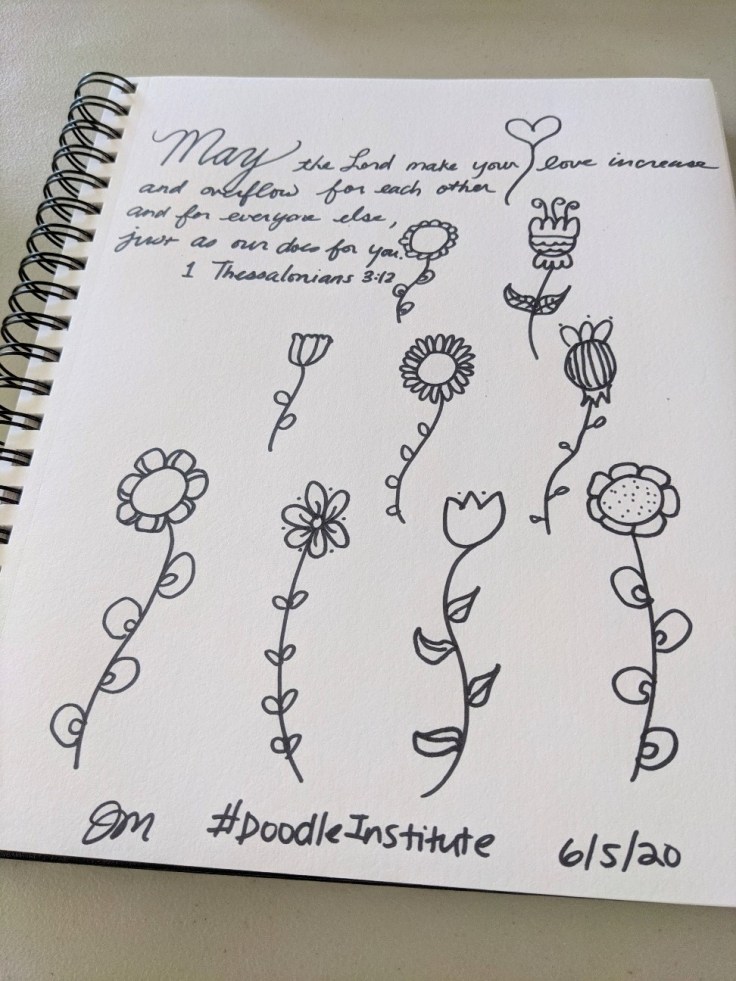 May the Lord make your love increase
and overflow for each other
and for everyone else,
just as our does for you.
1 Thessalonians 3:12
JM #DoodleInstitute 6/5/20